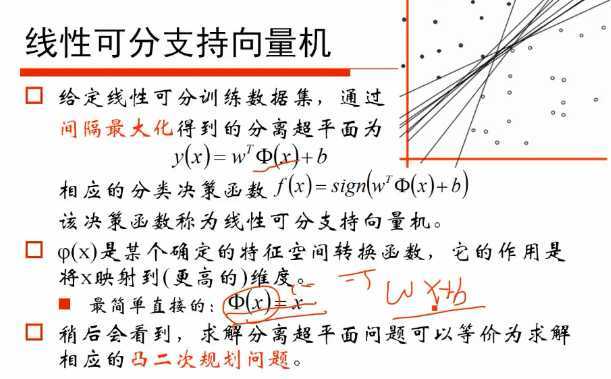 线性可分支持向量机
□ 给定线性可分训练数据集，通过
间隔最大化得到的分离超平面为
y(x) = wᵀΦ(x) + b
相应的分类决策函数 f(x) = sign(wᵀΦ(x) + b)
该决策函数称为线性可分支持向量机。
□ φ(x)是某个确定的特征空间转换函数，它的作用是
将x映射到(更高的)维度。
■ 最简单直接的：Φ(x) = x
wx+b
□ 稍后会看到，求解分离超平面问题可以等价为求解
相应的凸二次规划问题。